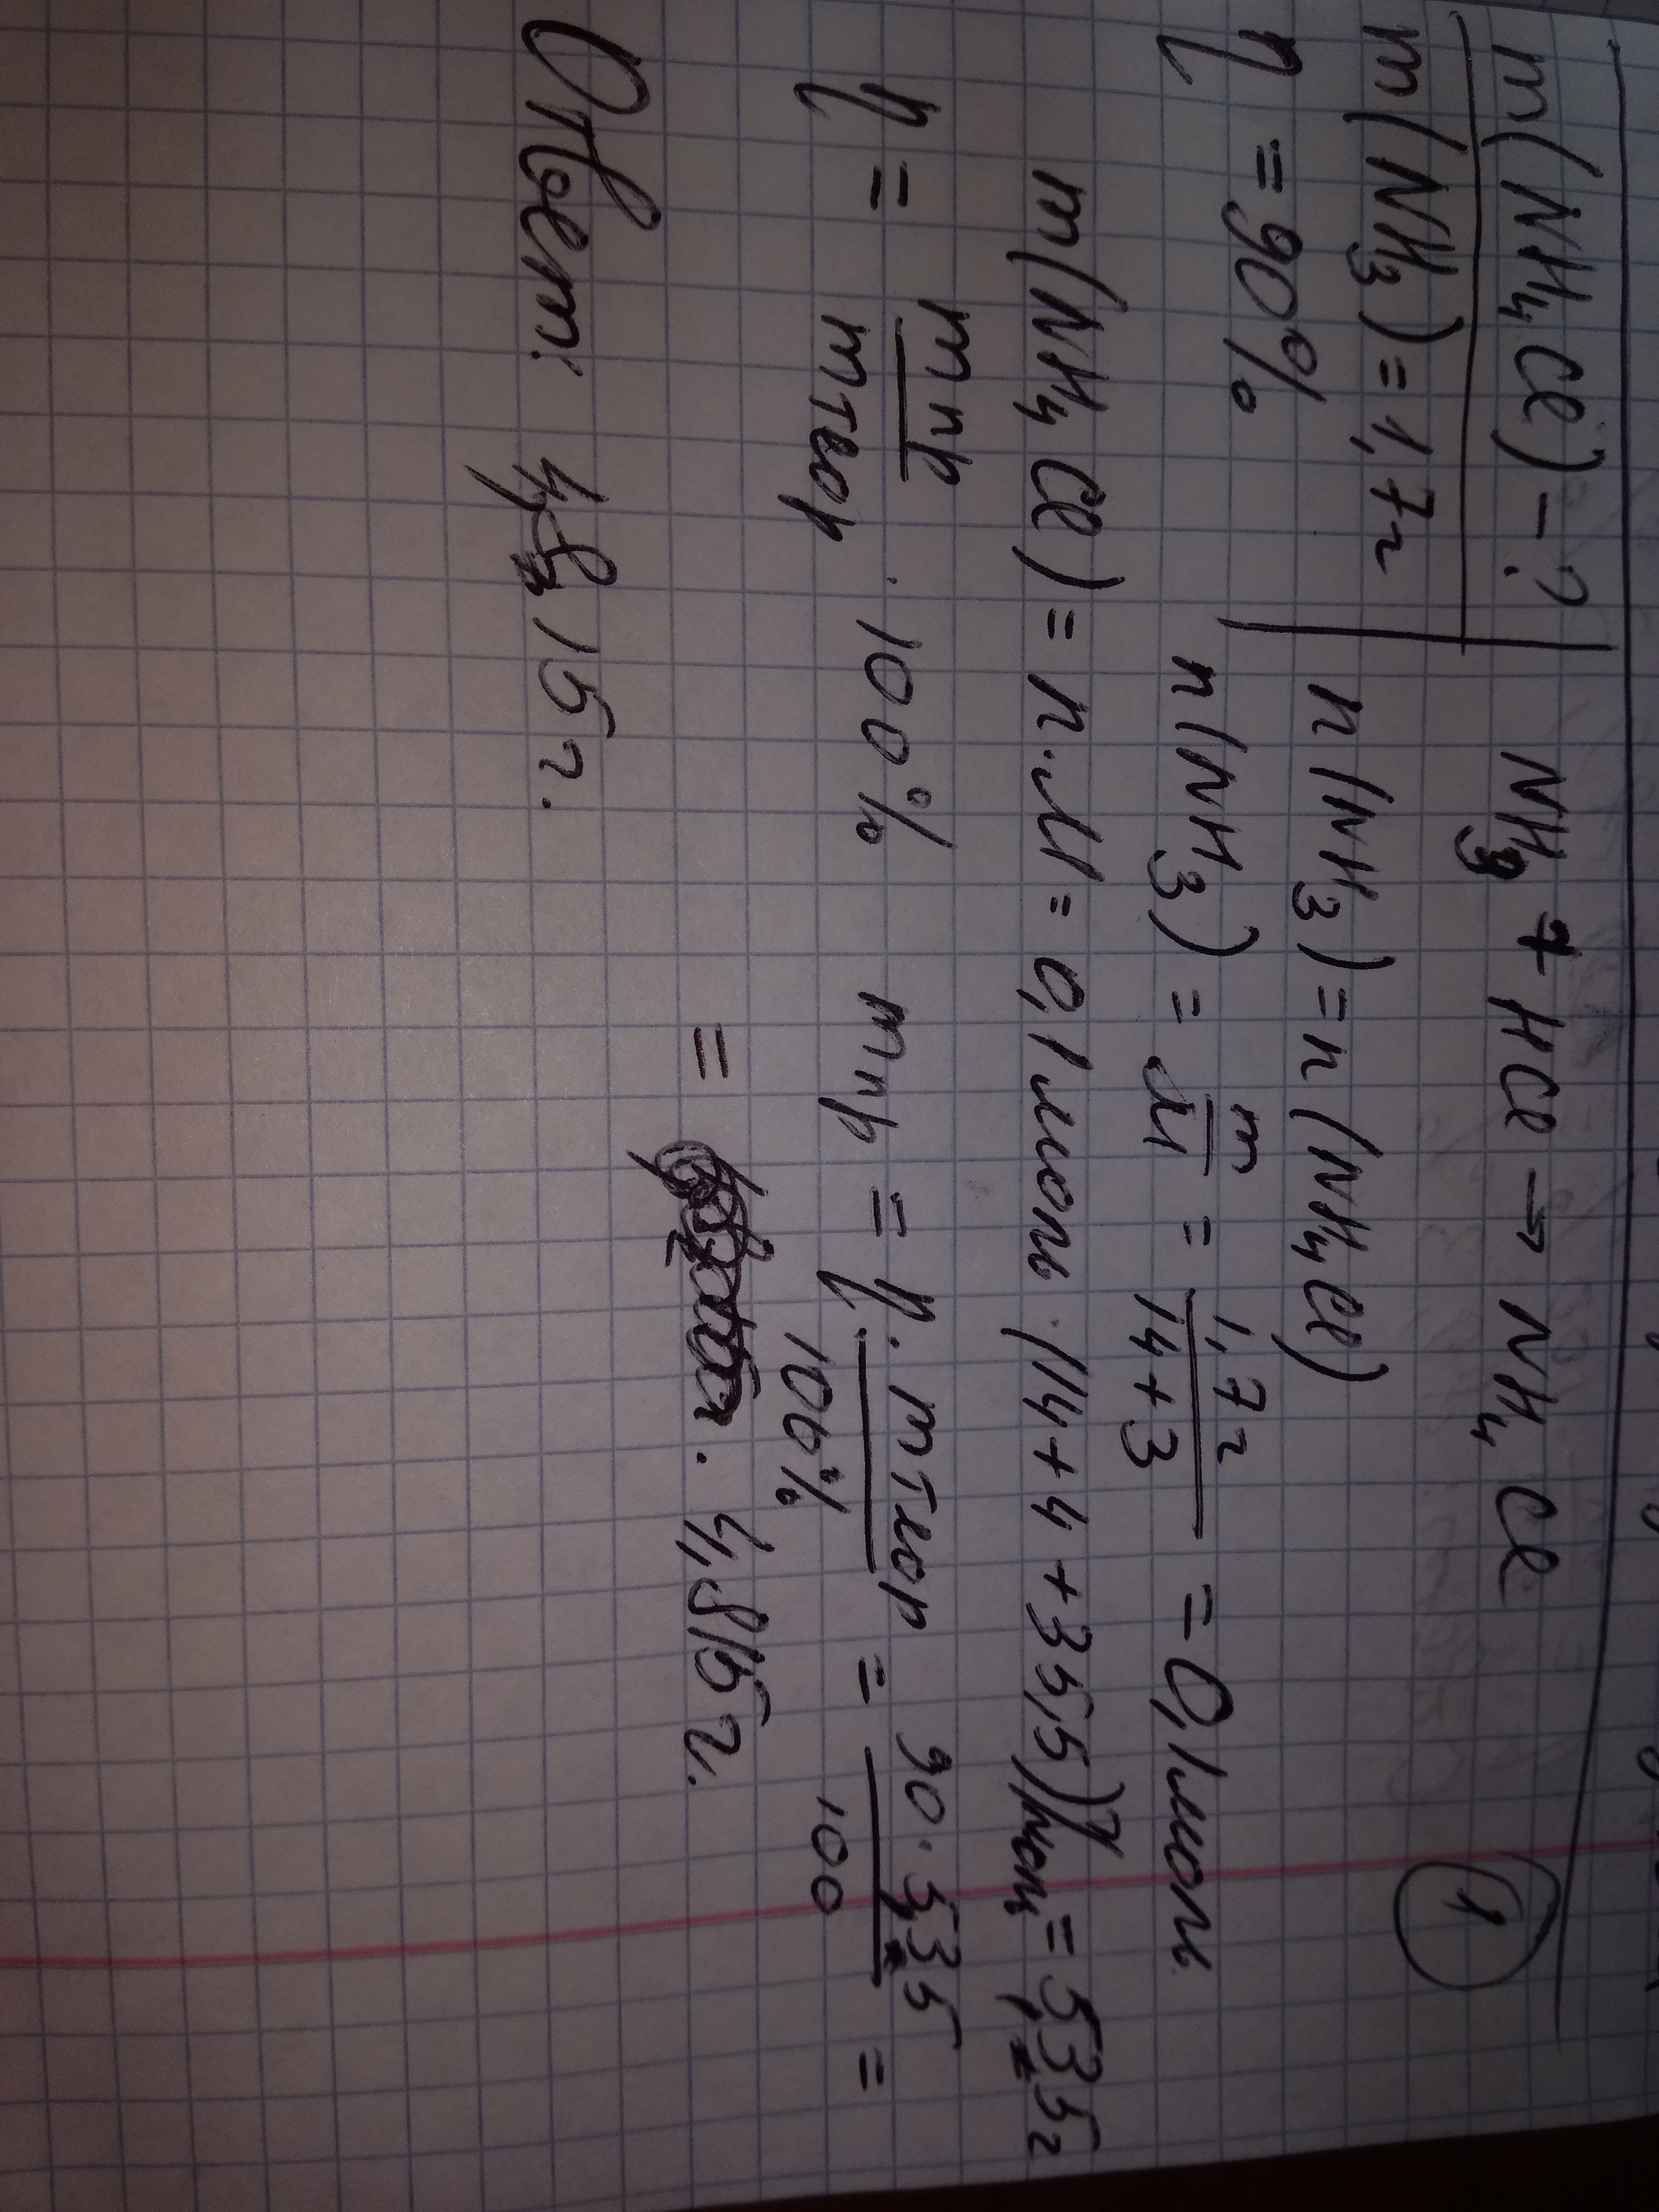 m(NH₄Cl) - ? NH₃ + HCl → NH₄Cl
m(NH₃) = 1,7г n(NH₃) = n(NH₄Cl)
η = 90% n(NH₃) = m/M = 1,7г/14+3 = 0,1 моль
m(NH₄Cl) = n·M = 0,1 моль · (14+4+35,5) г/моль = 5,35г
η = mпр/mтеор · 100% mпр = η · mтеор/100% = 90·5,35/100 =
= 4,815 г.
Ответ: 4,815 г.
1